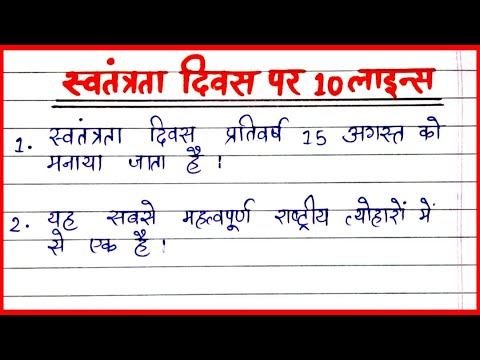 स्वतंत्रता दिवस पर 10 लाइन्स
1. स्वतंत्रता दिवस प्रतिवर्ष 15 अगस्त को
मनाया जाता है।
2. यह सबसे महत्वपूर्ण राष्ट्रीय त्योहारों में
से एक है।